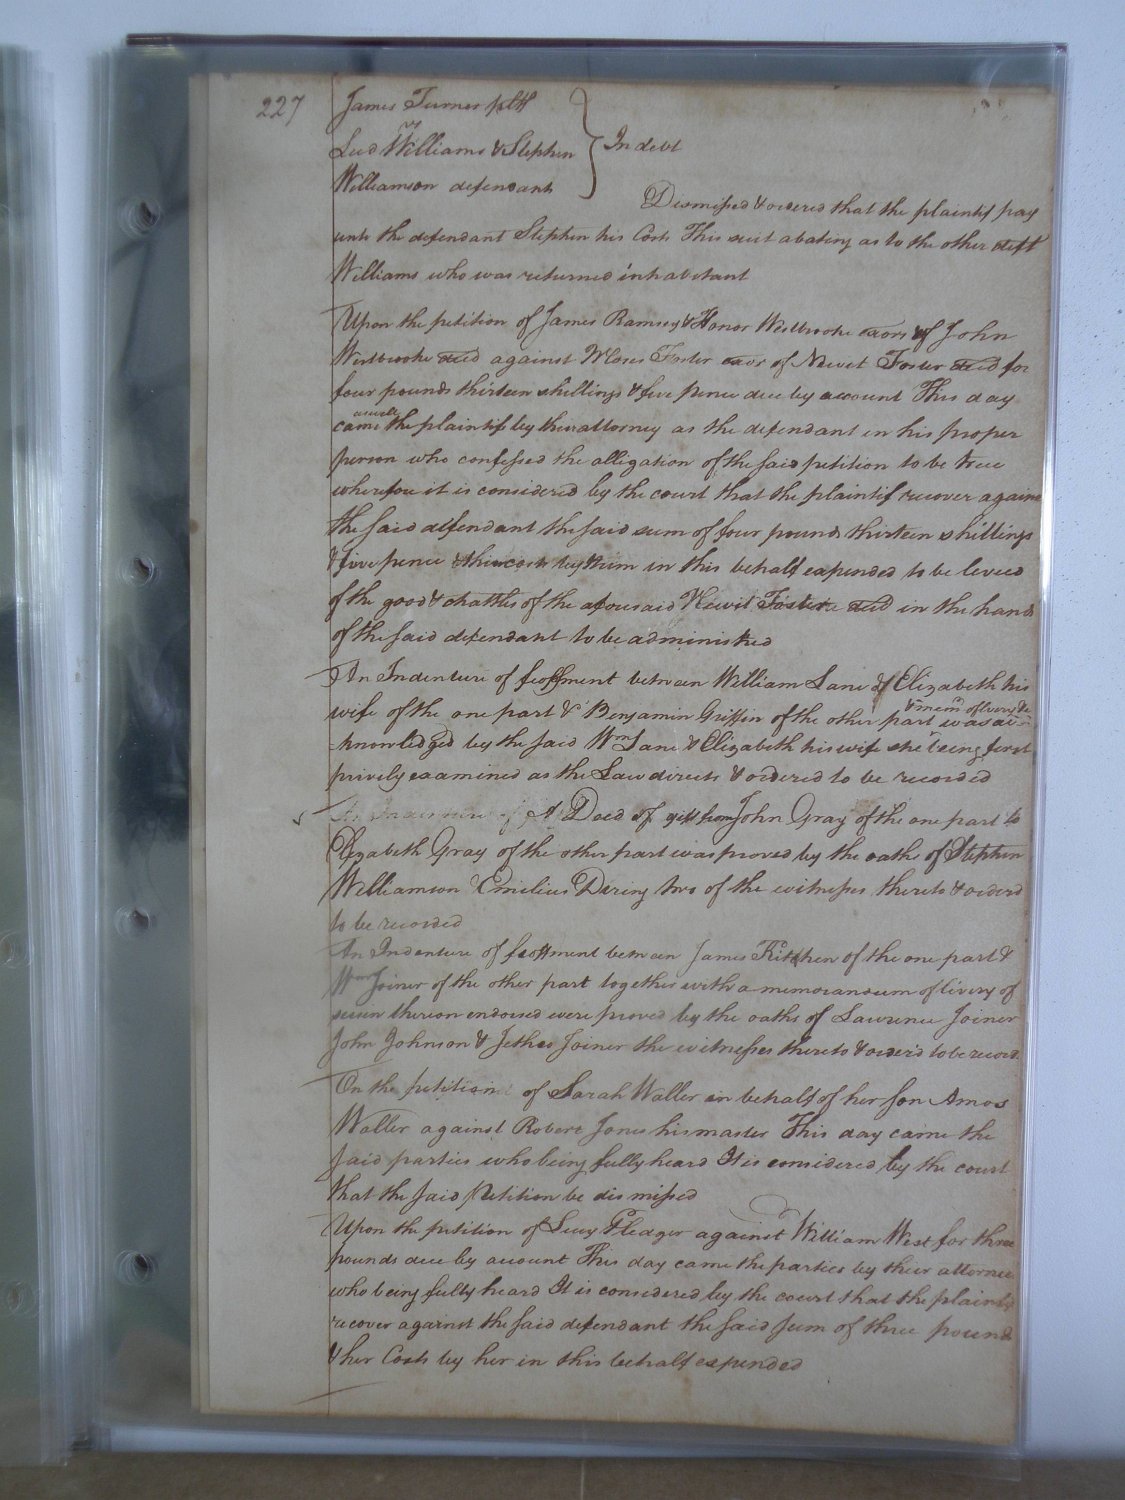 227
James Turner pltf
vs
Williams & Stephen
Williamson defendants
In debt
Dismissed & ordered that the plaintif pay
unto the defendant Stephen his Costs This suit abating as to the other deft
Williams who was returned inhabitant
Upon the petition of James Ramsey & Honor Westbrooke exors of John
Westbrooke decd against Moses Foster exor of Newit Foster decd for
four pounds thirteen shillings & five pence due by account This day
came aswell the plaintifs by their attorney as the defendant in his proper
person who confessed the allegation of the said petition to be true
wherefore it is considered by the court that the plaintif recover against
the said defendant the said sum of four pounds thirteen shillings
& five pence & their costs by them in this behalf expended to be levied
of the good & chattles of the aforesaid Newit Foster decd in the hands
of the said defendant to be administred
An Indenture of feoffment between William Lane & Elizabeth his
wife of the one part & Benjamin Griffin of the other part & memo of livery &c was ac-
-knowledged by the said Wm Lane & Elizabeth his wife she being first
privily examined as the Law directs & ordered to be recorded
An Indenture of A Deed of gift from John Gray of the one part to
Elizabeth Gray of the other part was proved by the oaths of Stephen
Williamson Emilius Dering two of the witnesses thereto & orderd
to be recorded
An Indenture of feoffment between James Kitchen of the one part &
Wm Joiner of the other part together with a memorandum of livery of
seisen thereon endorsed were proved by the oaths of Lawrence Joiner
John Johnson & Jethro Joiner the witnesses thereto & order'd to be record
On the petition of Sarah Waller in behalf of her son Amos
Waller against Robert Jones his master This day came the
said parties who being fully heard It is considered by the court
that the said Petition be dismissed
Upon the petition of Lucy Pledger against William West for three
pounds due by account This day came the parties by their attornies
who being fully heard It is considered by the court that the plaintif
recover against the said defendant the said sum of three pounds
& her Costs by her in this behalf expended